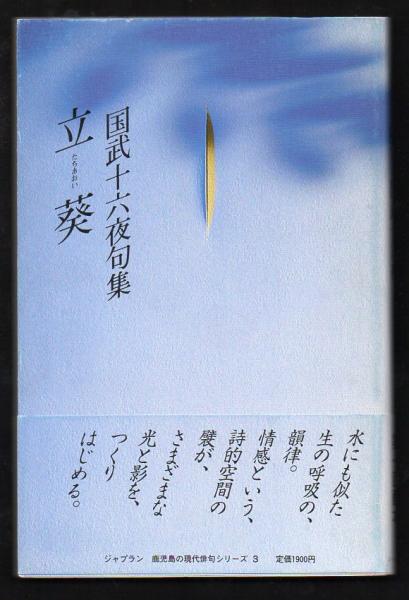 国武十六夜句集
立葵
たちあおい
水にも似た
生の呼吸の、
韻律。
情感という、
詩的空間の
襞が、
さまざまな
光と影を、
つくり
はじめる。
ジャプラン 鹿児島の現代俳句シリーズ 3 定価1900円